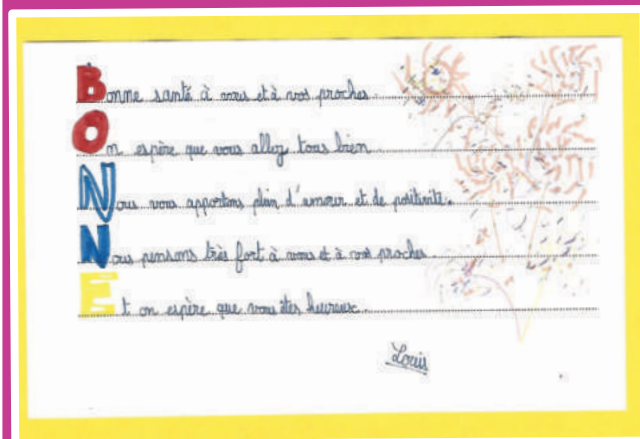 Bonne santé à vous et à vos proches.
On espère que vous allez tous bien
Nous vous apportons plein d'amour et de positivité.
Nous pensons très fort à vous et à vos proches.
Et on espère que vous êtes heureux.
Louis